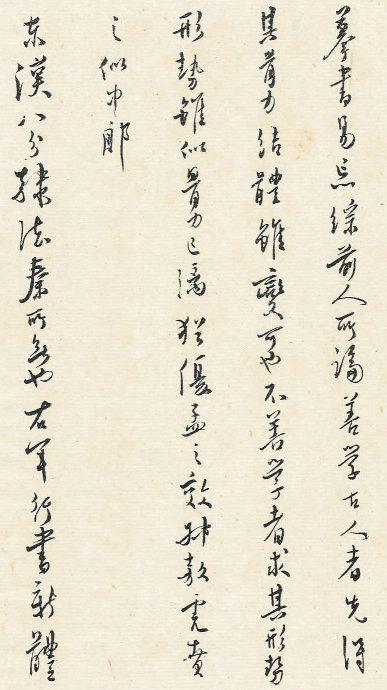 摹書易忘綜前人所論善學古人者先得
其骨力結體雖變可也不善學者求其形勢
形勢雖似骨力已漓猶優孟之效叔敖虎賁
之似中郎
東漢八分隸法秦所無也右軍行書新體